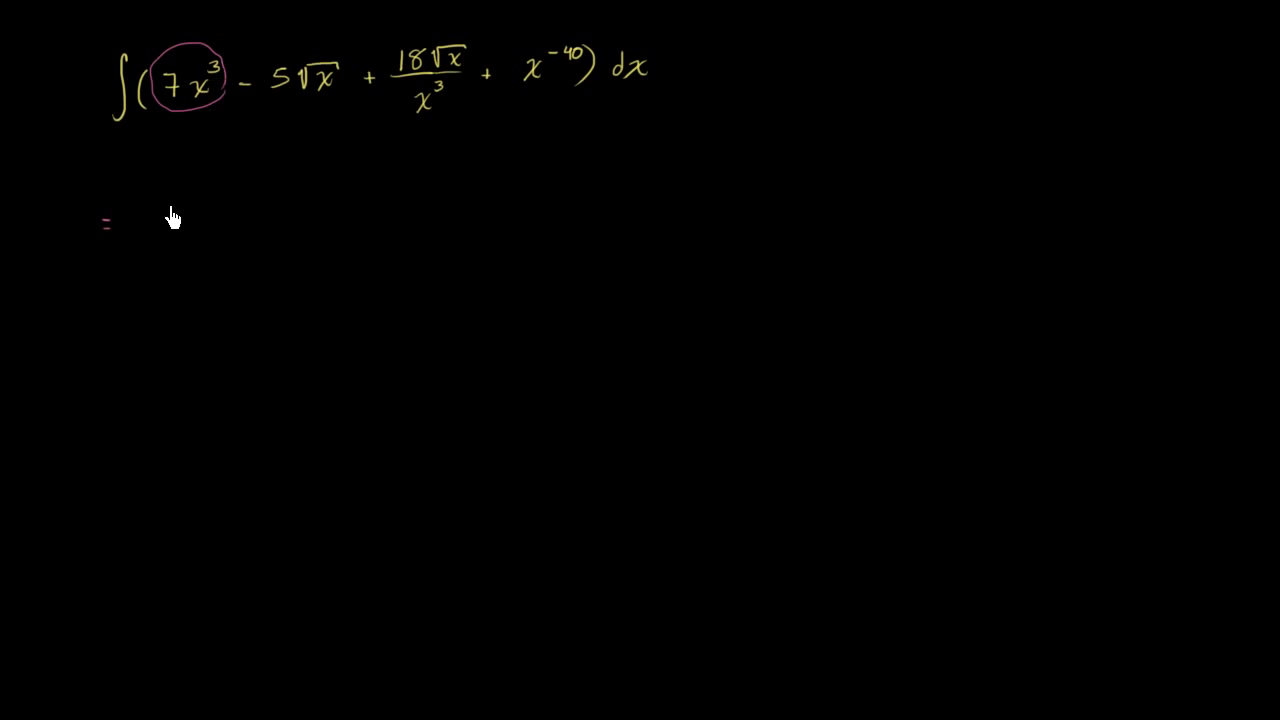 ∫(7x³ - 5√x + 18√x/x³ + x⁻⁴⁰) dx
=